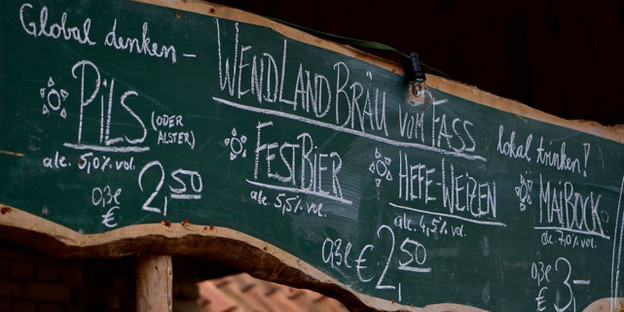 Global denken –
lokal trinken!
WENDLANDBRÄU VOM FASS
PILS (ODER ALSTER)
alc. 5,0% vol.
0,3l € 2,50
FESTBIER
alc. 5,5% vol.
HEFE-WEIZEN
alc. 4,5% vol.
0,3l € 2,50
MAIBOCK
alc. 7,0% vol.
0,3l € 3,-